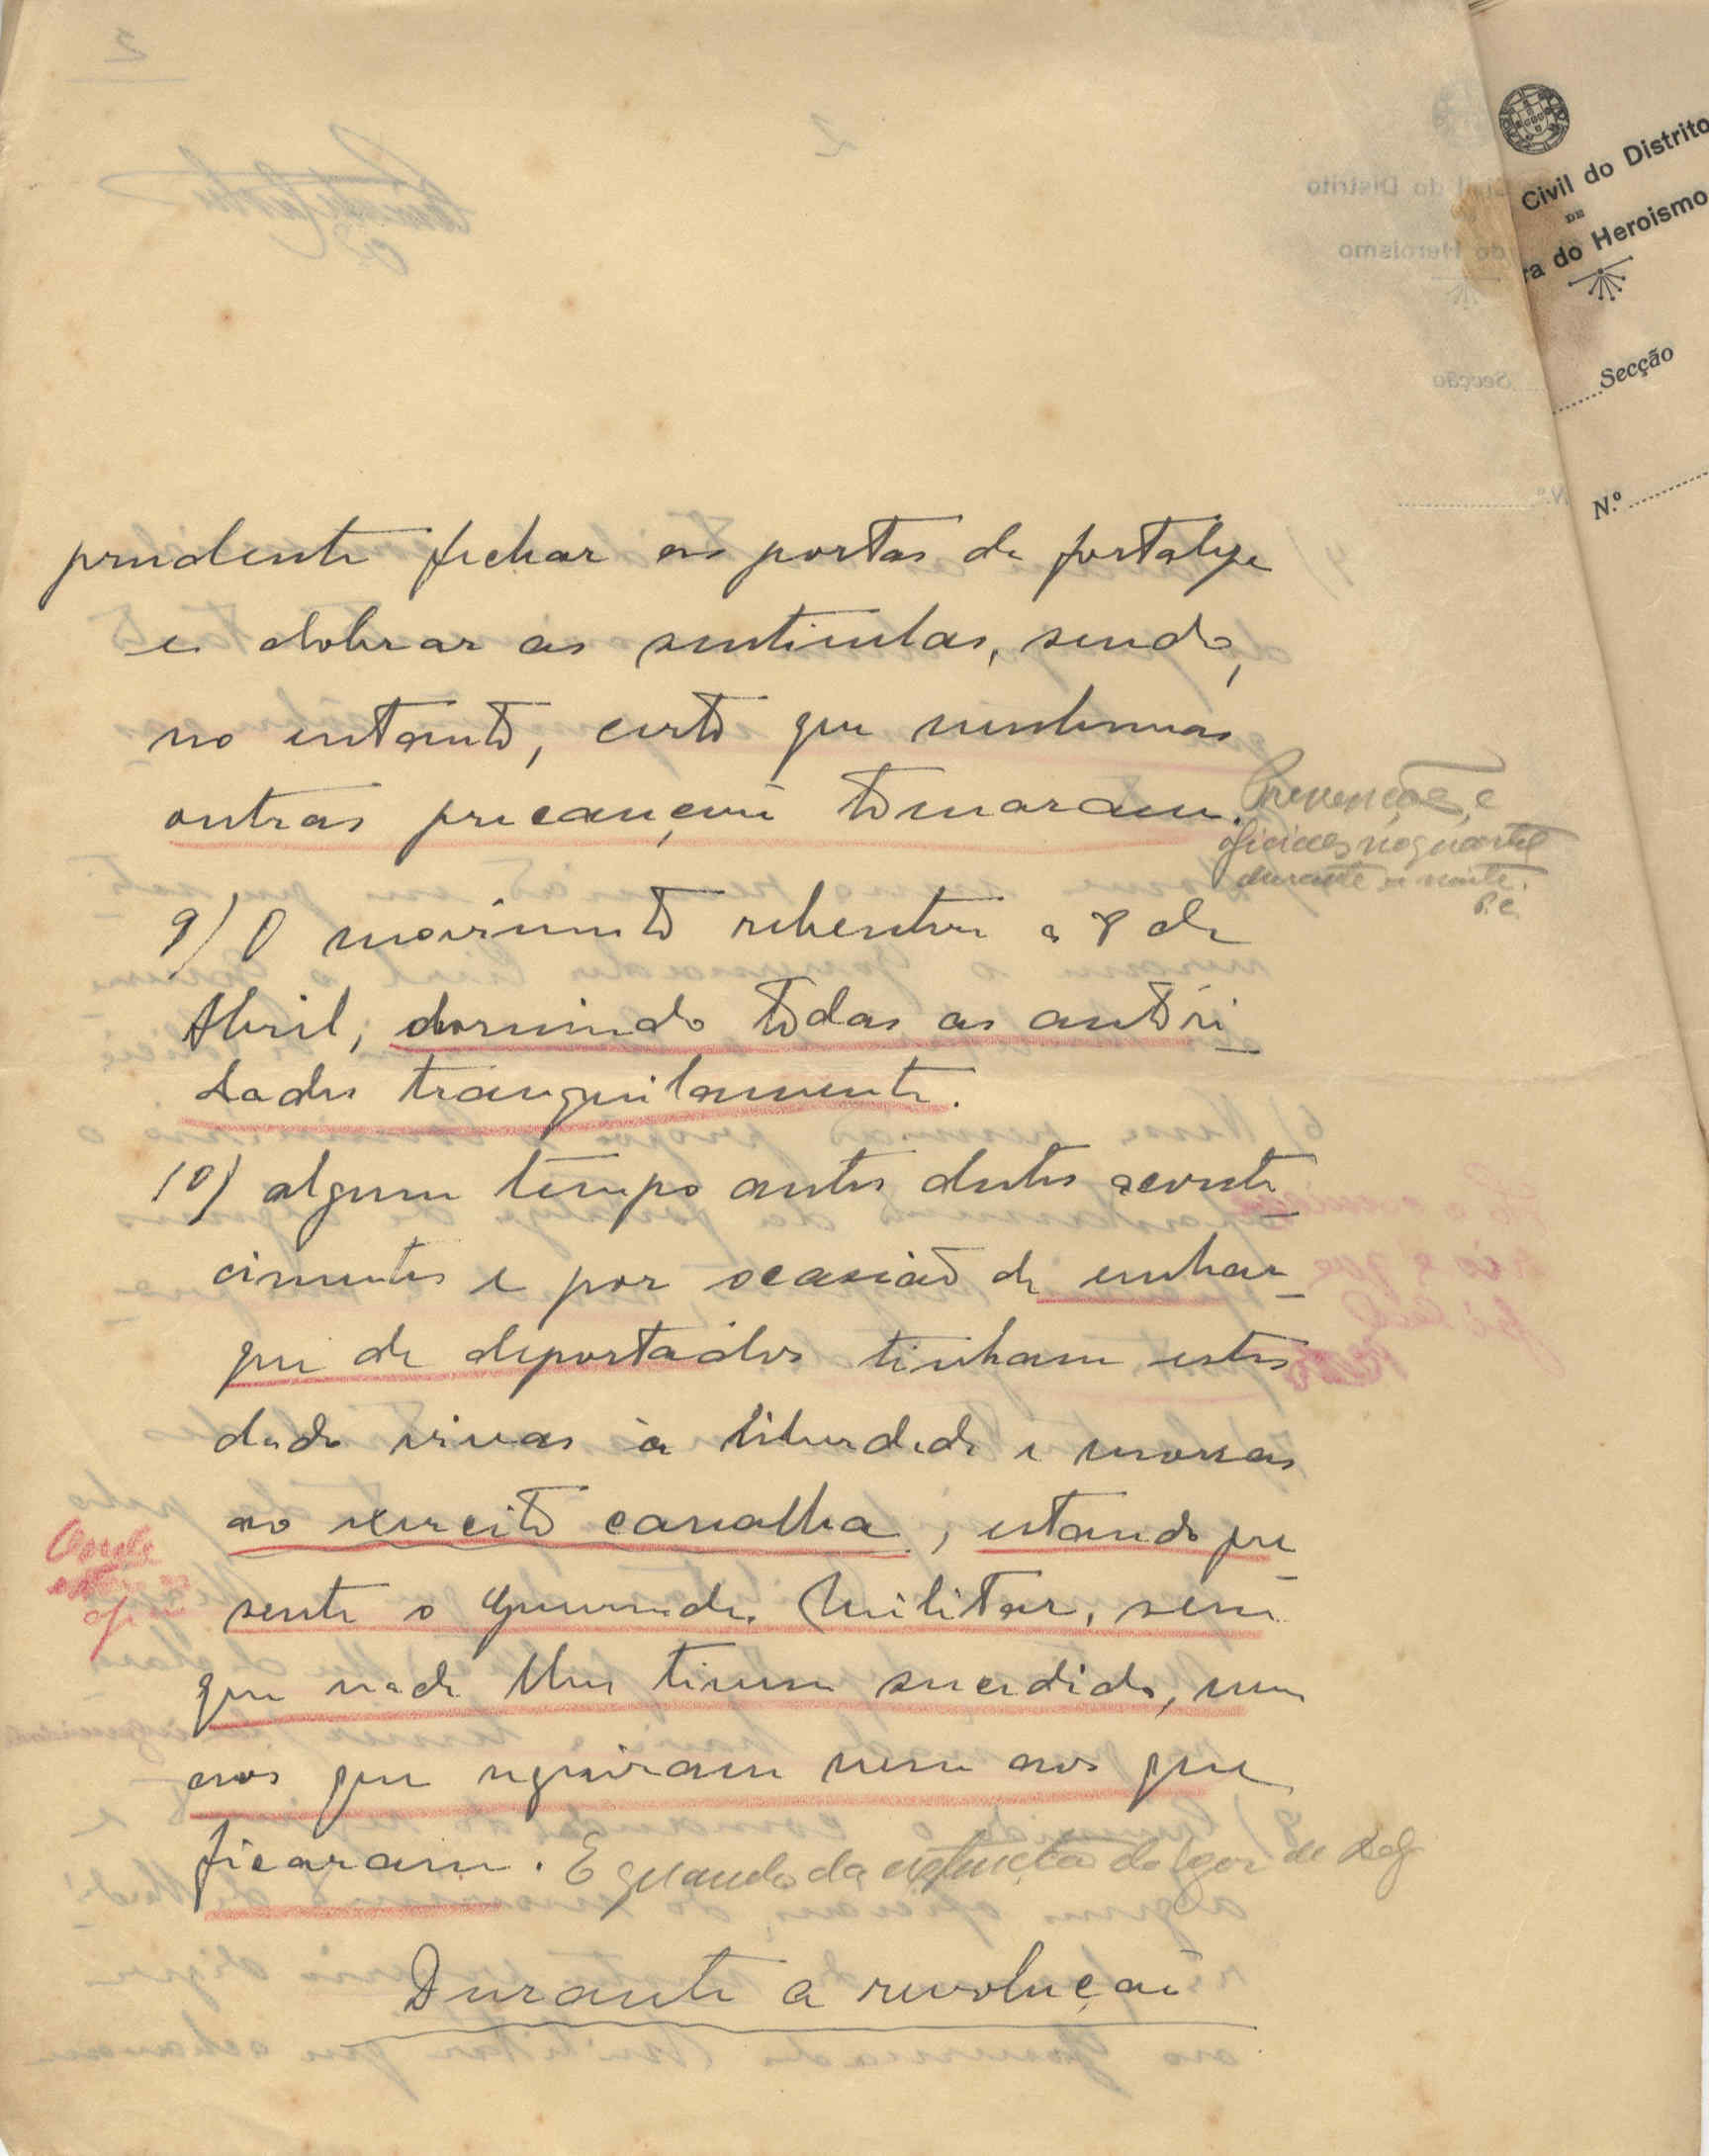 Civil do Distrito
DE
ra do Heroismo
Secção
N.º
prudente fechar as portas da fortaleza
e dobrar as sentinelas, sendo,
no entanto, certo que nenhumas
outras precauções tomaram.
Prevenções e
oficiaes no quartel
durante a noite.
9) O movimento rebentou a 8 de
Abril, dormindo todas as autori-
dades tranquilamente.
10) algum tempo antes destes aconte-
cimentos e por ocasião de embar-
que de deportados tinham estes
dado vivas à liberdade e morras
ao exercito canalha, estando pre-
sente o Governador Militar, sem
que nada lhes tivesse sucedido, nem
aos que seguiram nem aos que
ficaram. E quando da
Durante a revolução